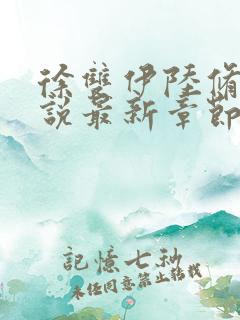 徐雙伊陸脩
說最新章節
記憶七秒
未經同意禁止轉載